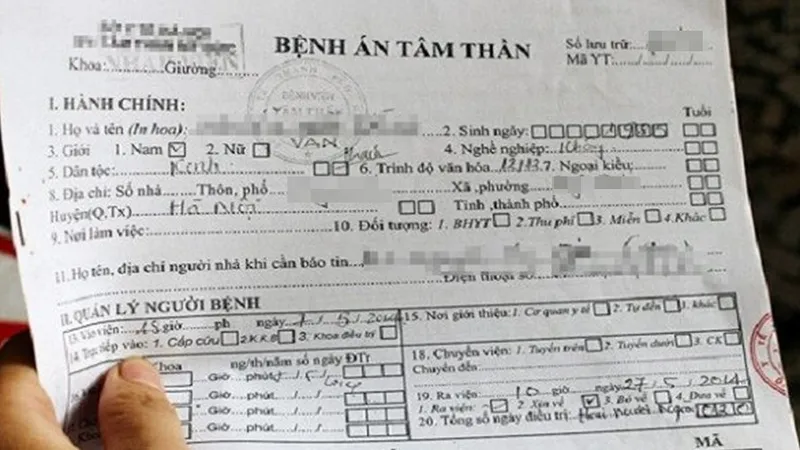 BỆNH ÁN TÂM THẦN
Số lưu trữ:
Khoa:..........Giường:........
Mã YT:....../....../......
I. HÀNH CHÍNH:
Tuổi
1. Họ và tên (In hoa):
2. Sinh ngày:
3. Giới 1. Nam 2. Nữ
4. Nghề nghiệp:
5. Dân tộc: Kinh
6. Trình độ văn hóa 12/12
7. Ngoại kiều:
8. Địa chỉ: Số nhà........Thôn, phố
Xã ,phường
Huyện(Q.Tx) Hà Nội
Tỉnh ,thành phố
9. Nơi làm việc:
10. Đối tượng: 1. BHYT 2. Thu phí 3. Miễn 4. Khác
11. Họ tên, địa chỉ người nhà khi cần báo tin
Điện thoại số
BỆNH VIỆN
TÂM THẦN
II. QUẢN LÝ NGƯỜI BỆNH
13. Vào viện: 15 giờ ph ngày 7/5/2014
14. Trực tiếp vào: 1. Cấp cứu 2. K.K.B 3. Khoa điều trị
15. Nơi giới thiệu: 1. Cơ quan y tế 2. Tự đến 3. khác
Khoa ng/th/năm số ngày ĐTr
Giờ phút
Giờ phút ..../..../....
Giờ phút ..../..../....
18. Chuyển viện: 1. Tuyến trên 2. Tuyến dưới 3. CK
Chuyển đến
19. Ra viện: 10 giờ ngày 27/5/2014
1. Ra viện 2. Xin về 3. Bỏ về 4. Đưa về
20. Tổng số ngày điều trị: Hai mươi ngày
MÃ